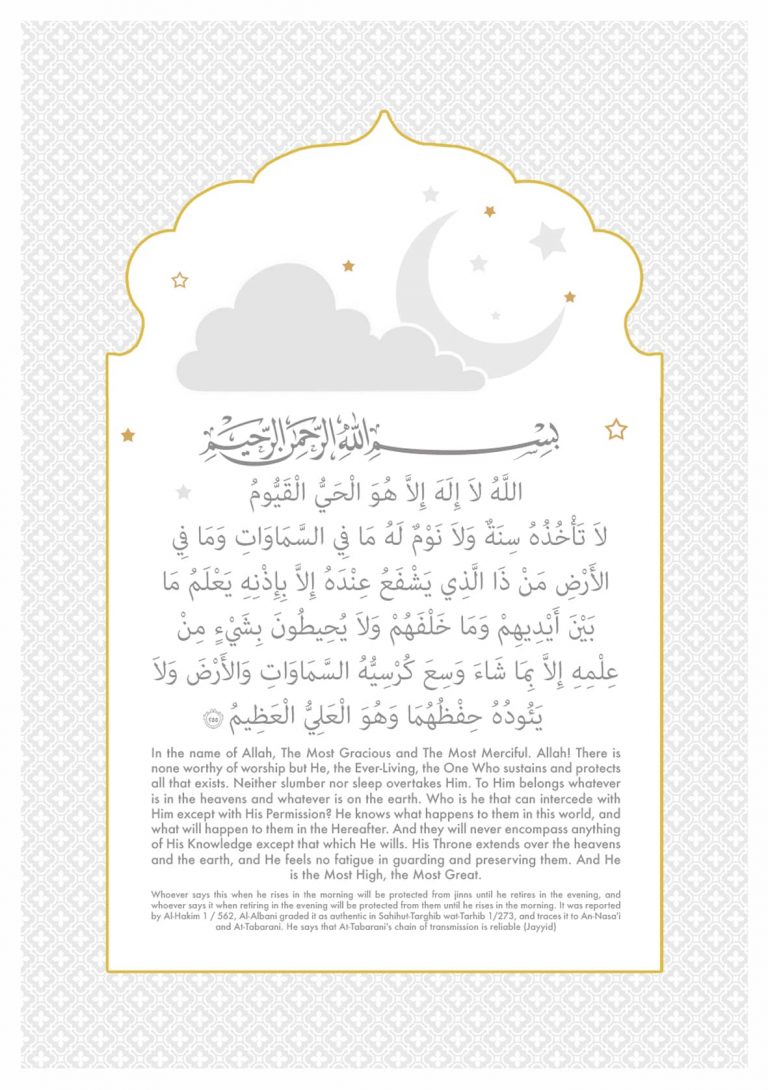 بِسْمِ اللَّهِ الرَّحْمَٰنِ الرَّحِيمِ
اللَّهُ لاَ إِلَهَ إِلاَّ هُوَ الْحَيُّ الْقَيُّومُ
لاَ تَأْخُذُهُ سِنَةٌ وَلاَ نَوْمٌ لَهُ مَا فِي السَّمَاوَاتِ وَمَا فِي
الأَرْضِ مَنْ ذَا الَّذِي يَشْفَعُ عِنْدَهُ إِلاَّ بِإِذْنِهِ يَعْلَمُ مَا
بَيْنَ أَيْدِيهِمْ وَمَا خَلْفَهُمْ وَلاَ يُحِيطُونَ بِشَيْءٍ مِنْ
عِلْمِهِ إِلاَّ بِمَا شَاءَ وَسِعَ كُرْسِيُّهُ السَّمَاوَاتِ وَالأَرْضَ وَلاَ
يَئُودُهُ حِفْظُهُمَا وَهُوَ الْعَلِيُّ الْعَظِيمُ ۝٢٥٥
In the name of Allah, The Most Gracious and The Most Merciful. Allah! There is
none worthy of worship but He, the Ever-Living, the One Who sustains and protects
all that exists. Neither slumber nor sleep overtakes Him. To Him belongs whatever
is in the heavens and whatever is on the earth. Who is he that can intercede with
Him except with His Permission? He knows what happens to them in this world, and
what will happen to them in the Hereafter. And they will never encompass anything
of His Knowledge except that which He wills. His Throne extends over the heavens
and the earth, and He feels no fatigue in guarding and preserving them. And He
is the Most High, the Most Great.
Whoever says this when he rises in the morning will be protected from jinns until he retires in the evening, and
whoever says it when retiring in the evening will be protected from them until he rises in the morning. It was reported
by Al-Hakim 1 / 562, Al-Albani graded it as authentic in Sahihut-Targhib wat-Tarhib 1/273, and traces it to An-Nasa'i
and At-Tabarani. He says that At-Tabarani's chain of transmission is reliable (Jayyid)